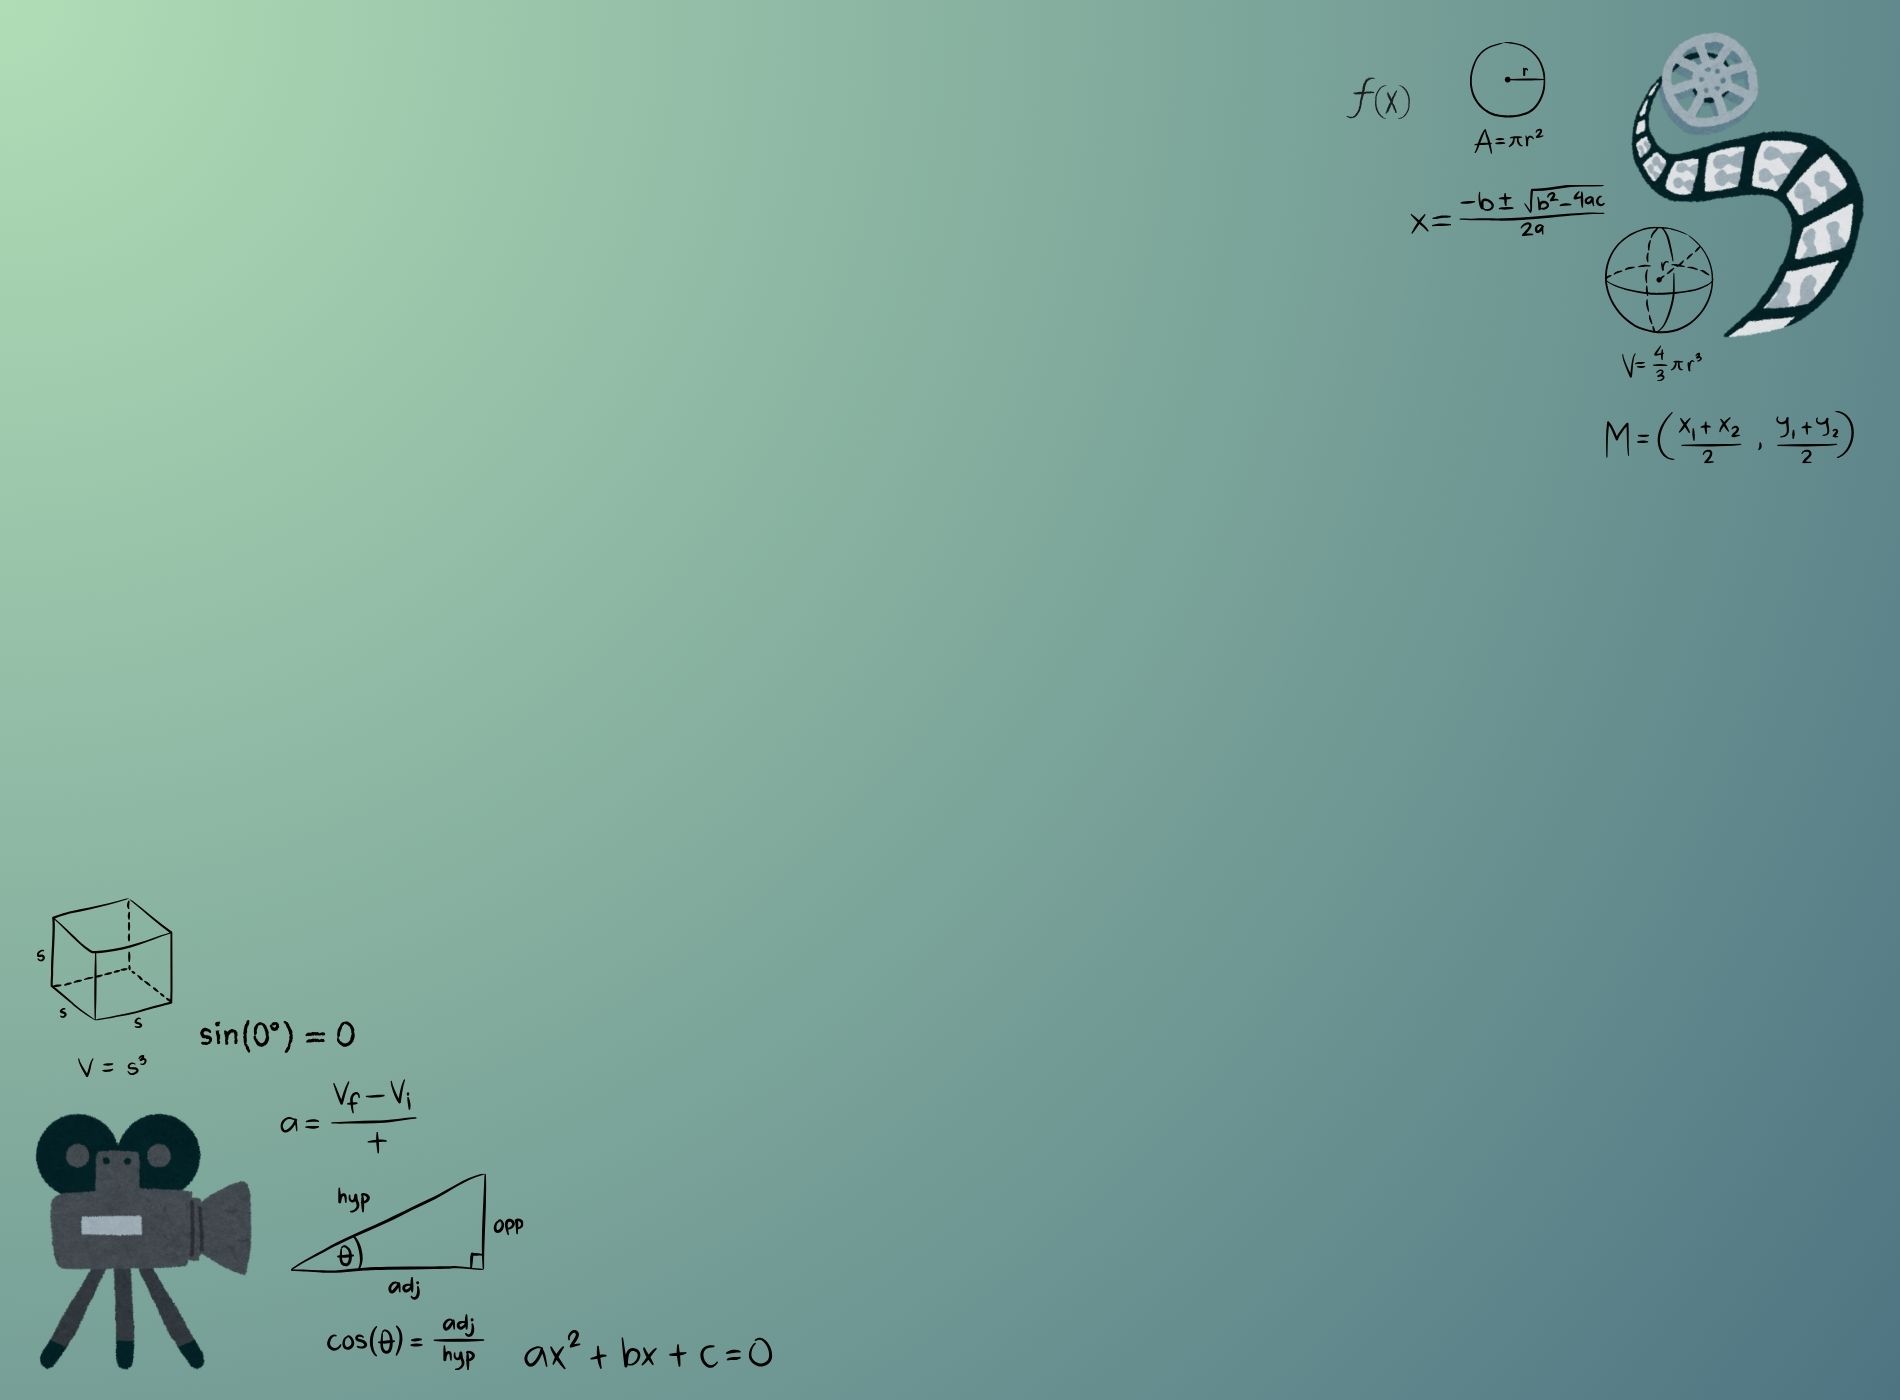 f(x)
r
A=πr²
x= -b± √b²-4ac / 2a
r
V= 4/3 πr³
M=( x₁+x₂ / 2 , y₁+y₂ / 2 )
s
s
s
V = s³
sin(0°) = 0
a= Vf-Vi / +
hyp
opp
θ
adj
cos(θ)= adj / hyp
ax²+bx+c=0